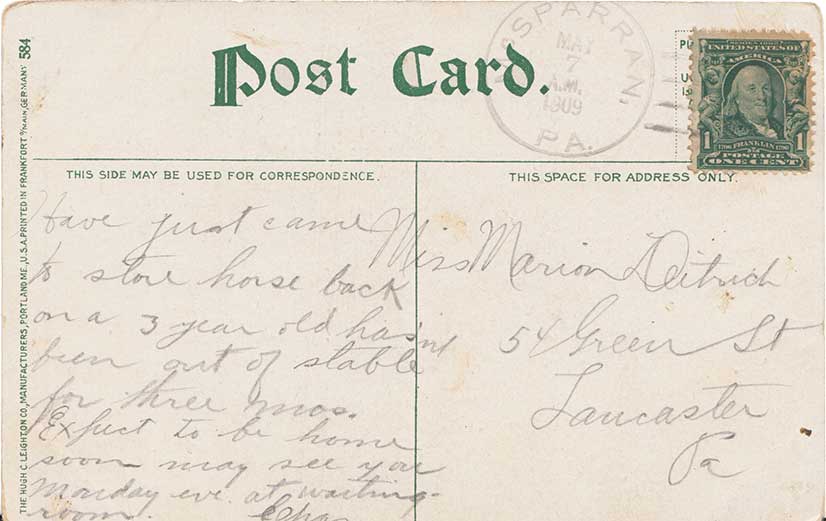 Post Card.
McSPARRAN,
MAY
7
A.M.
1909
PA.
UNITED STATES OF
AMERICA
1706 FRANKLIN 1790
POSTAGE
1 ONE CENT 1
THIS SIDE MAY BE USED FOR CORRESPONDENCE.
THIS SPACE FOR ADDRESS ONLY.
Have just came
to store horse back
on a 3 year old has'nt
been out of stable
for three mos.
Expect to be home
soon may see you
Monday eve. at waiting-
room. Chas
Miss Marion Deitrich
54 Green St
Lancaster
Pa
THE HUGH C. LEIGHTON CO., MANUFACTURERS, PORTLAND ME., U.S.A. PRINTED IN FRANKFORT o/MAIN, GERMANY 584